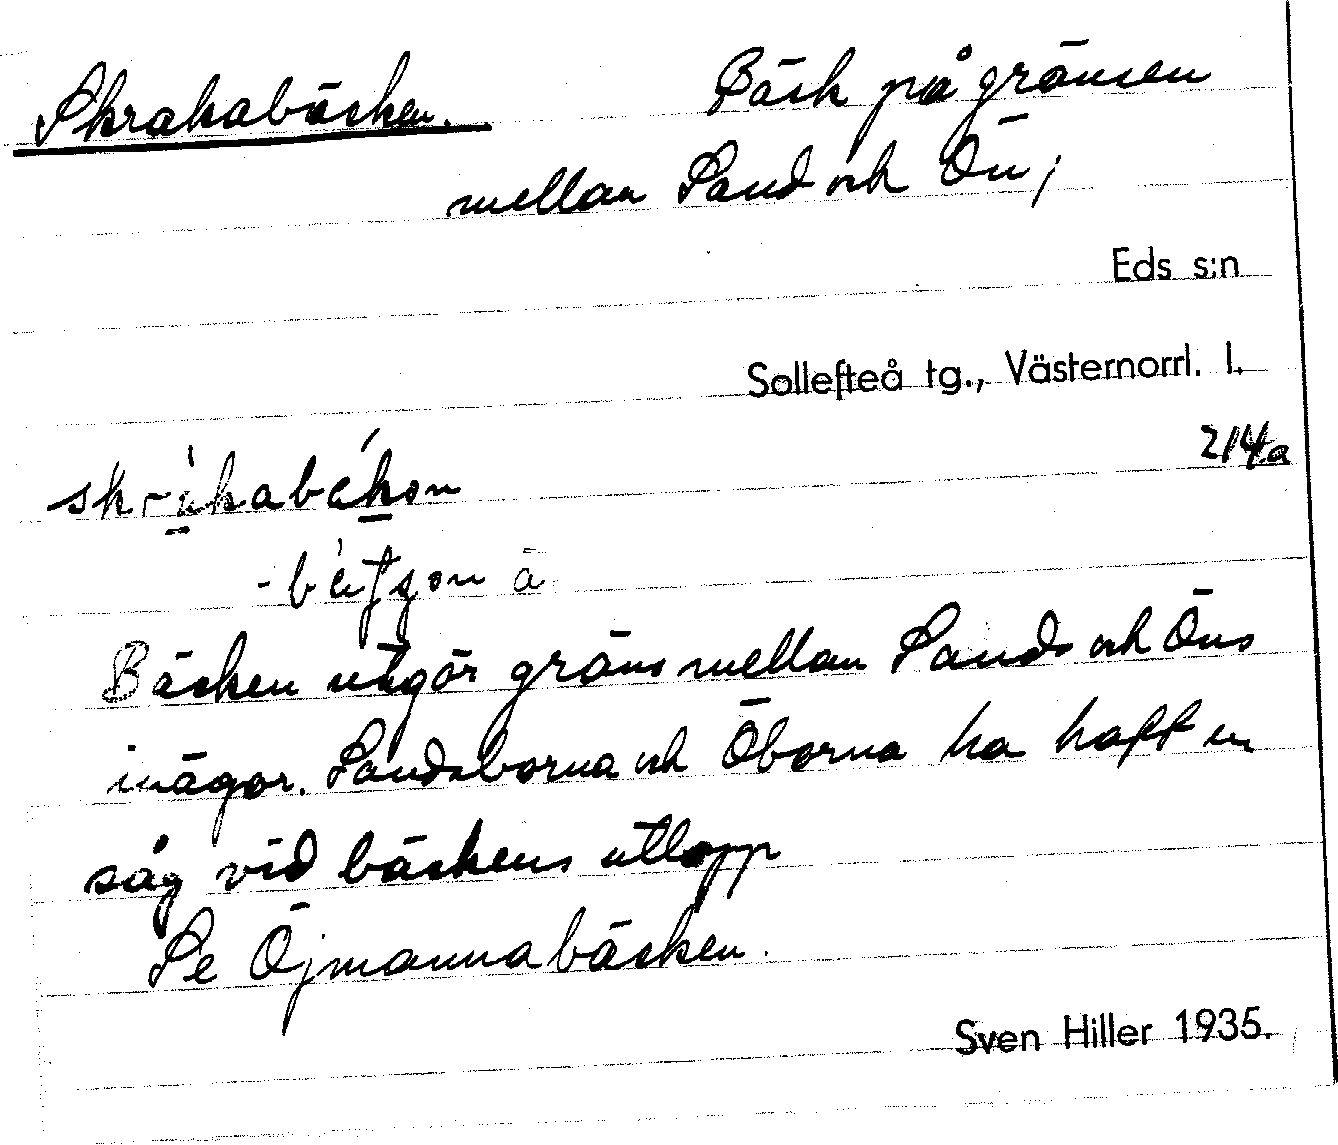 Skrakabäcken. Bäck på gränsen
mellan Sand och Ön;
Eds s:n
Sollefteå tg., Västernorrl. l.
214a
Bäcken utgör gräns mellan Sands och Öns
inägor. Sandsborna och Öborna ha haft en
såg vid bäckens utlopp
Se Öjmannabäcken.
Sven Hiller 1935.